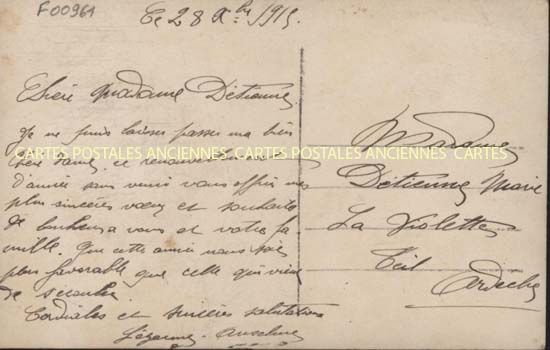 F00961
Le 28 Xbre 1915
Chère Madame Détienne
Je ne puis laisser passer ma bien
chère dame ce renouvellement
d'année sans venir vous offrir mes
plus sincères vœux et souhaits
de bonheur a vous et votre fa
mille que cette année nous sois
plus favorable que celle qui vien
de sécouler
Cordiales et sincères salutations
Anselme
CARTES POSTALES ANCIENNES CARTES POSTALES ANCIENNES CARTES
Madame
Détienne Marie
La Violette
Teil
Ardèche